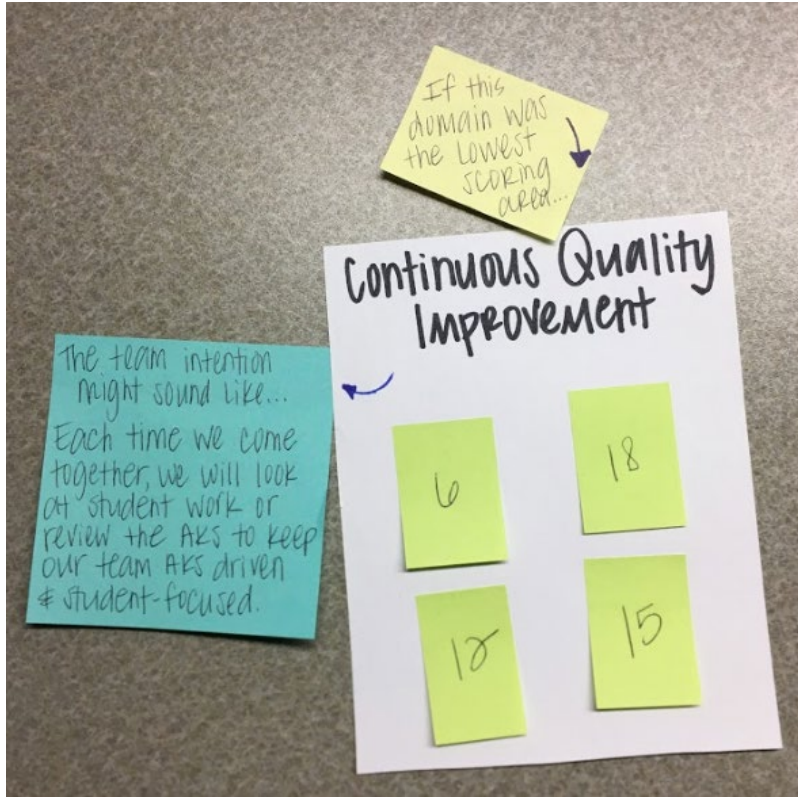 If this
domain was
the lowest
scoring
area...
Continuous Quality
Improvement
The team intention
might sound like...
Each time we come
together, we will look
at student work or
review the AKS to keep
our team AKS driven
& student-focused.
6
18
12
15